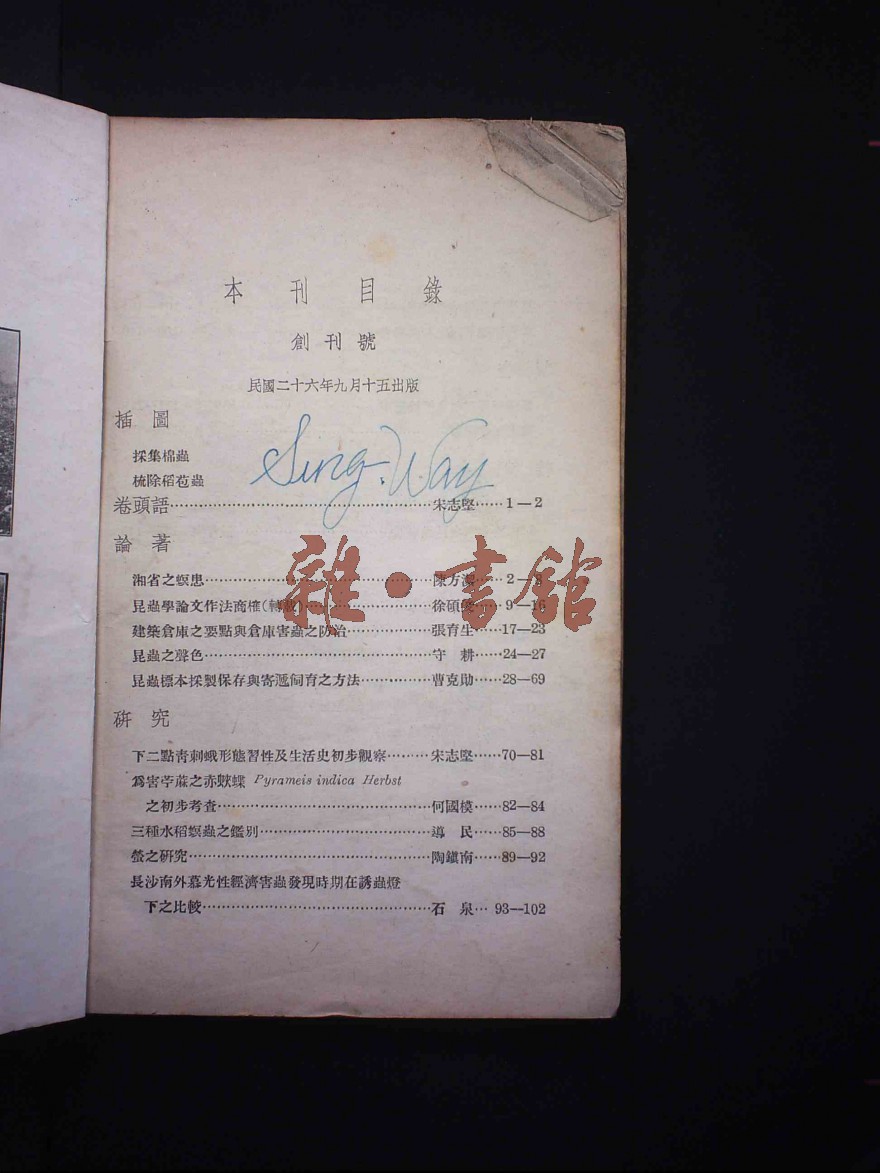 本刊目錄
創刊號
民國二十六年九月十五出版
插圖
採集棉蟲
梳除稻苞蟲
Sing. Way
卷頭語……宋志堅……1—2
論著
湘省之螟患……陳方潔……2—8
昆蟲學論文作法商榷(轉載)……徐碩……9—16
建築倉庫之要點與倉庫害蟲之防治……張育生……17—23
昆蟲之聲色……守耕……24—27
昆蟲標本採製保存與寄遞飼育之方法……曹克勛……28—69
研究
下二點靑刺蛾形態習性及生活史初步觀察……宋志堅……70—81
爲害苧蔴之赤蛺蝶 Pyrameis indica Herbst
之初步考查……何國模……82—84
三種水稻螟蟲之鑑別……導民……85—88
螢之硏究……陶鎭南……89—92
長沙南外慕光性經濟害蟲發現時期在誘蟲燈
下之比較……石泉…93—102
雜·書館